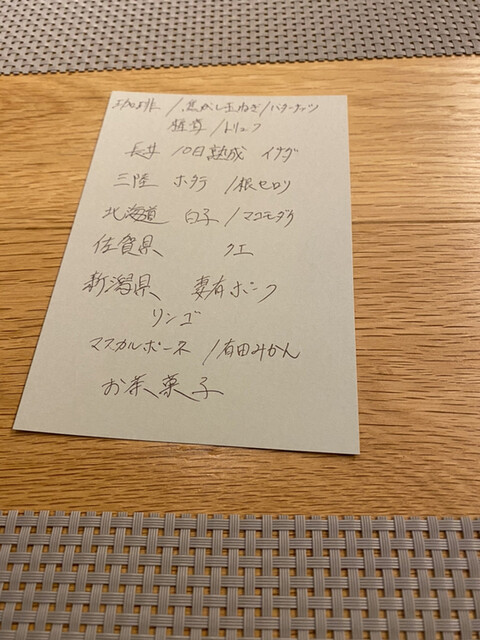 珈琲 /焦がし玉ねぎ/バターナッツ
椎茸 /トリュフ
長井 10日熟成 イサキ
三陸 ホタテ /根セロリ
北海道 白子 /マコモダケ
佐賀県 クエ
新潟県 妻有ポーク
リンゴ
マスカルポーネ /有田みかん
お茶菓子